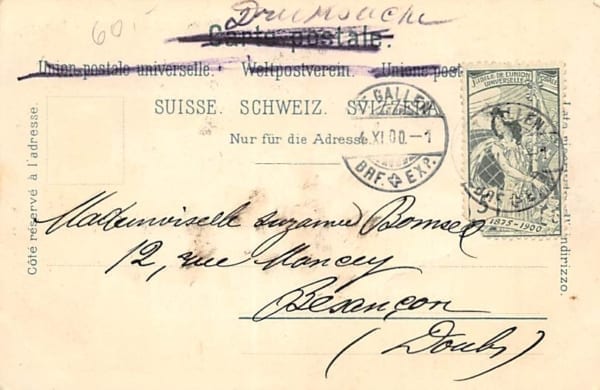 60.
Drucksache
Carte postale.
Union postale universelle. Weltpostverein. Unione post
SUISSE. SCHWEIZ. SVIZZERA.
Nur für die Adresse.
Côté réservé à l'adresse.
ST. GALLEN
4.XI.00.-1
BRF. EXP.
JUBILÉ DE L'UNION
UNIVERSELLE
1875-1900
Mademoiselle Suzanne Bomsel
12, rue Mancey
Besançon
(Doubs)